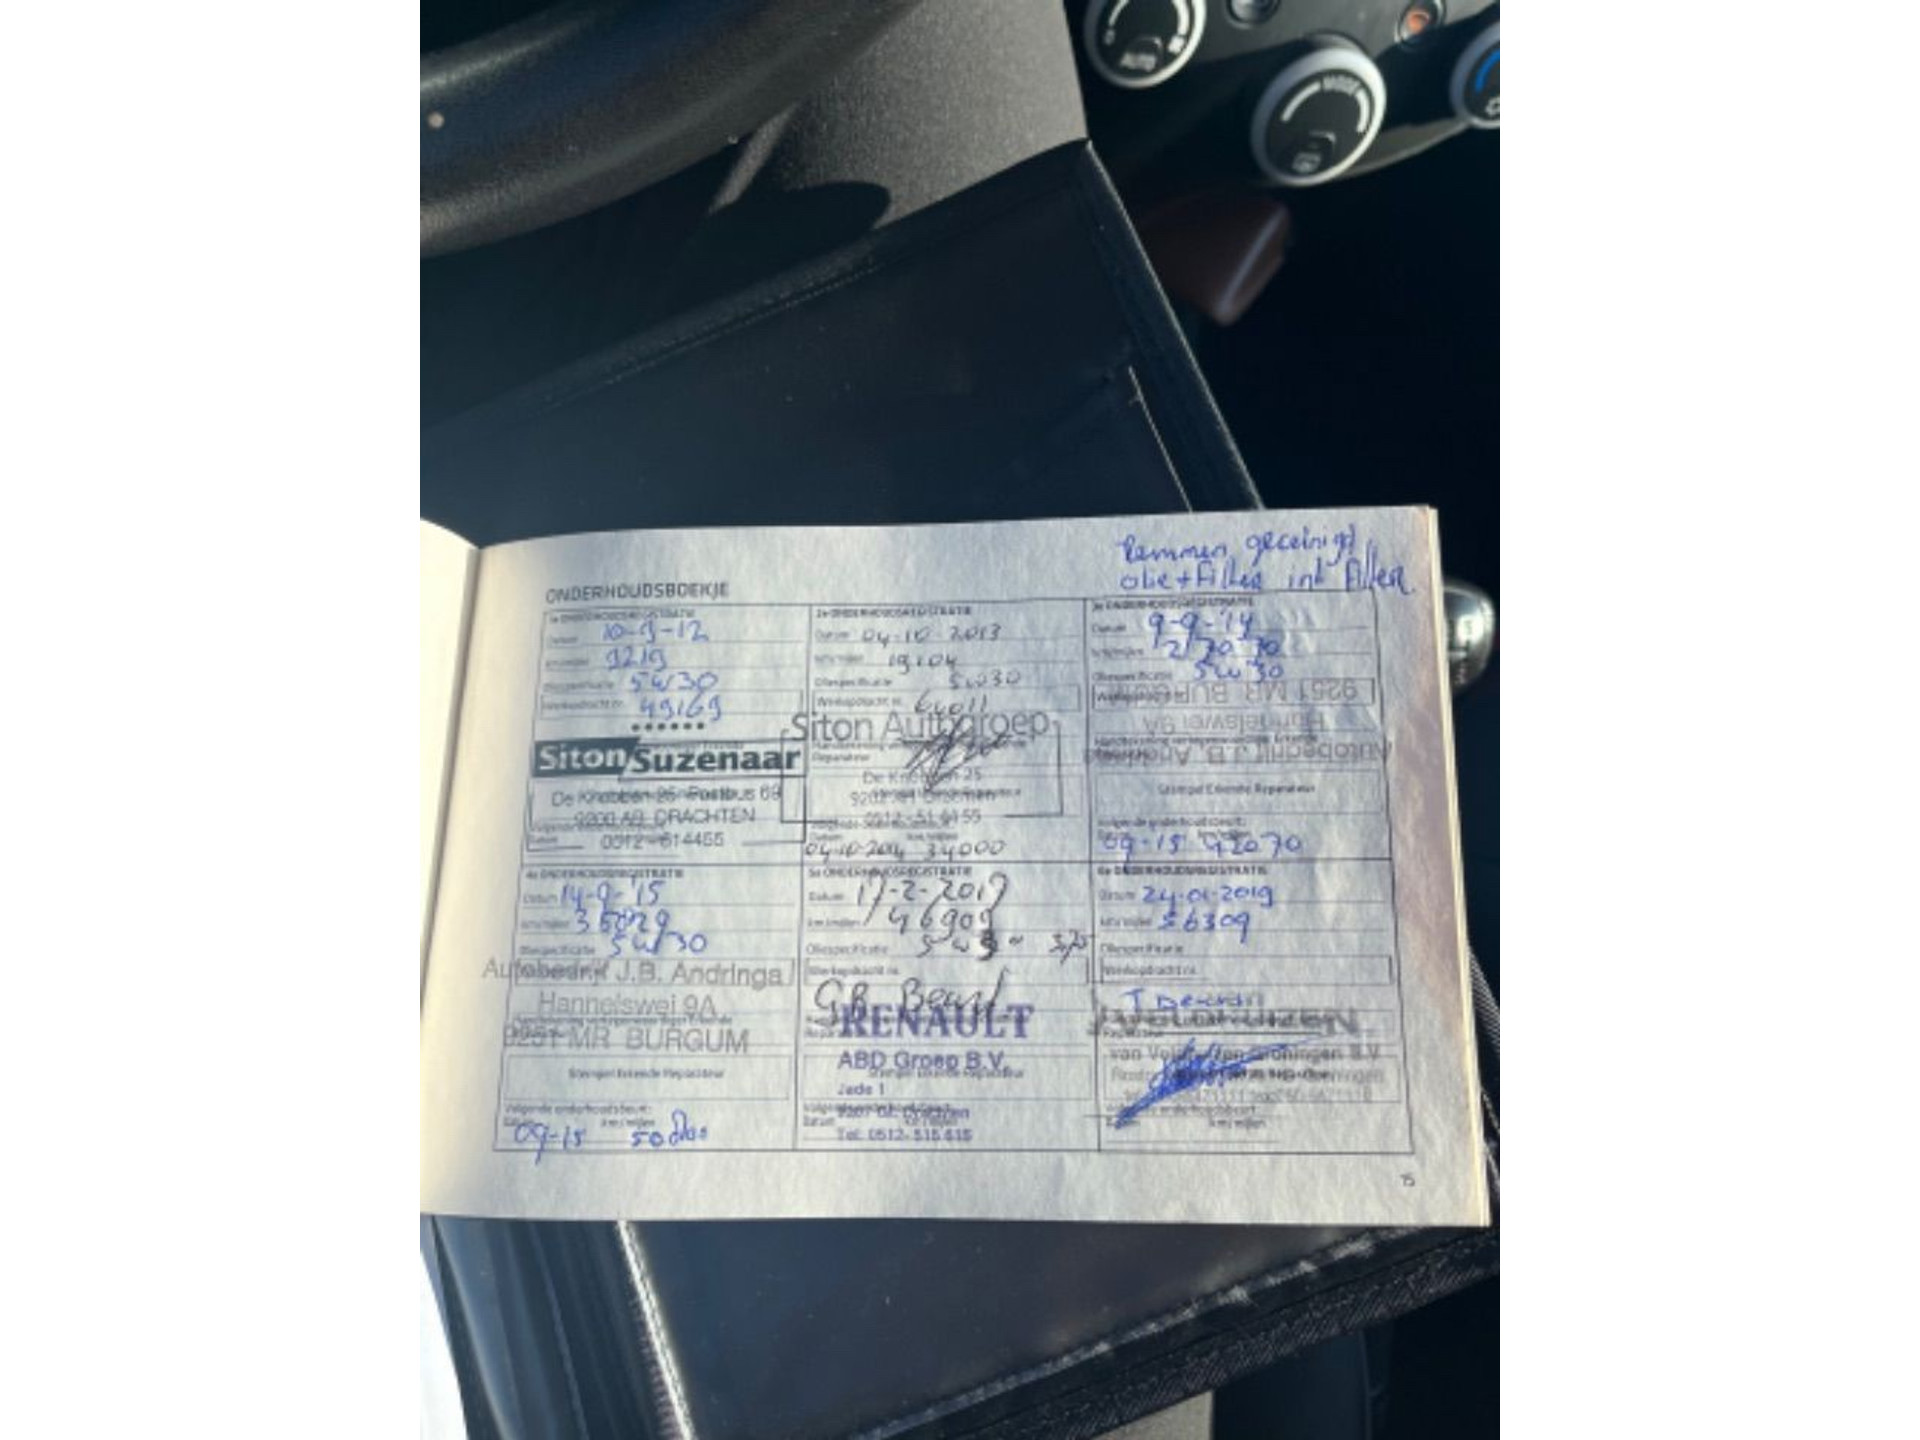 AUTO
MODE
remmen gereinigd
olie + filter int filter
ONDERHOUDSBOEKJE
1e ONDERHOUDSREGISTRATIE
Datum 10-9-12
km/mijlen 9219
Oliespecificatie 5W30
Werkopdracht nr. 49169
Siton Suzenaar
De Knobben 25 Postbus 69
9200 AB DRACHTEN
0512-514455
Datum
2e ONDERHOUDSREGISTRATIE
Datum 04-10-2013
km/mijlen 19104
Oliespecificatie 5W30
Werkopdracht nr. 64011
Siton Autogroep
Reparateur
De Knobben 25
Drachten
0512-514455
Datum km/mijlen
04-10-2014 34000
3e ONDERHOUDSREGISTRATIE
Datum 9-9-'14
km/mijlen
Oliespecificatie 5W30
9251 MR BURGUM
Hannelswei 9A
Autobedrijf J.B. Andringa
Stempel Erkende Reparateur
Volgende onderhoudsbeurt:
09-15 42070
4e ONDERHOUDSREGISTRATIE
Datum 14-9-'15
km/mijlen
Oliespecificatie 5W30
Autobedrijf J.B. Andringa
Hannelswei 9A
9251 MR BURGUM
Stempel Erkende Reparateur
Volgende onderhoudsbeurt:
Datum km/mijlen
09-15
5e ONDERHOUDSREGISTRATIE
Datum 17-2-2017
km/mijlen 46909
Oliespecificatie
Werkopdracht nr.
GR Beurt
RENAULT
ABD Groep B.V.
Stempel Erkende Reparateur
Jade 1
Drachten
Datum km/mijlen
Tel: 0512-515615
6e ONDERHOUDSREGISTRATIE
Datum 24-01-2019
km/mijlen 56309
Oliespecificatie
Werkopdracht nr.
Groningen B.V.
Volgende onderhoudsbeurt
Datum km/mijlen
15